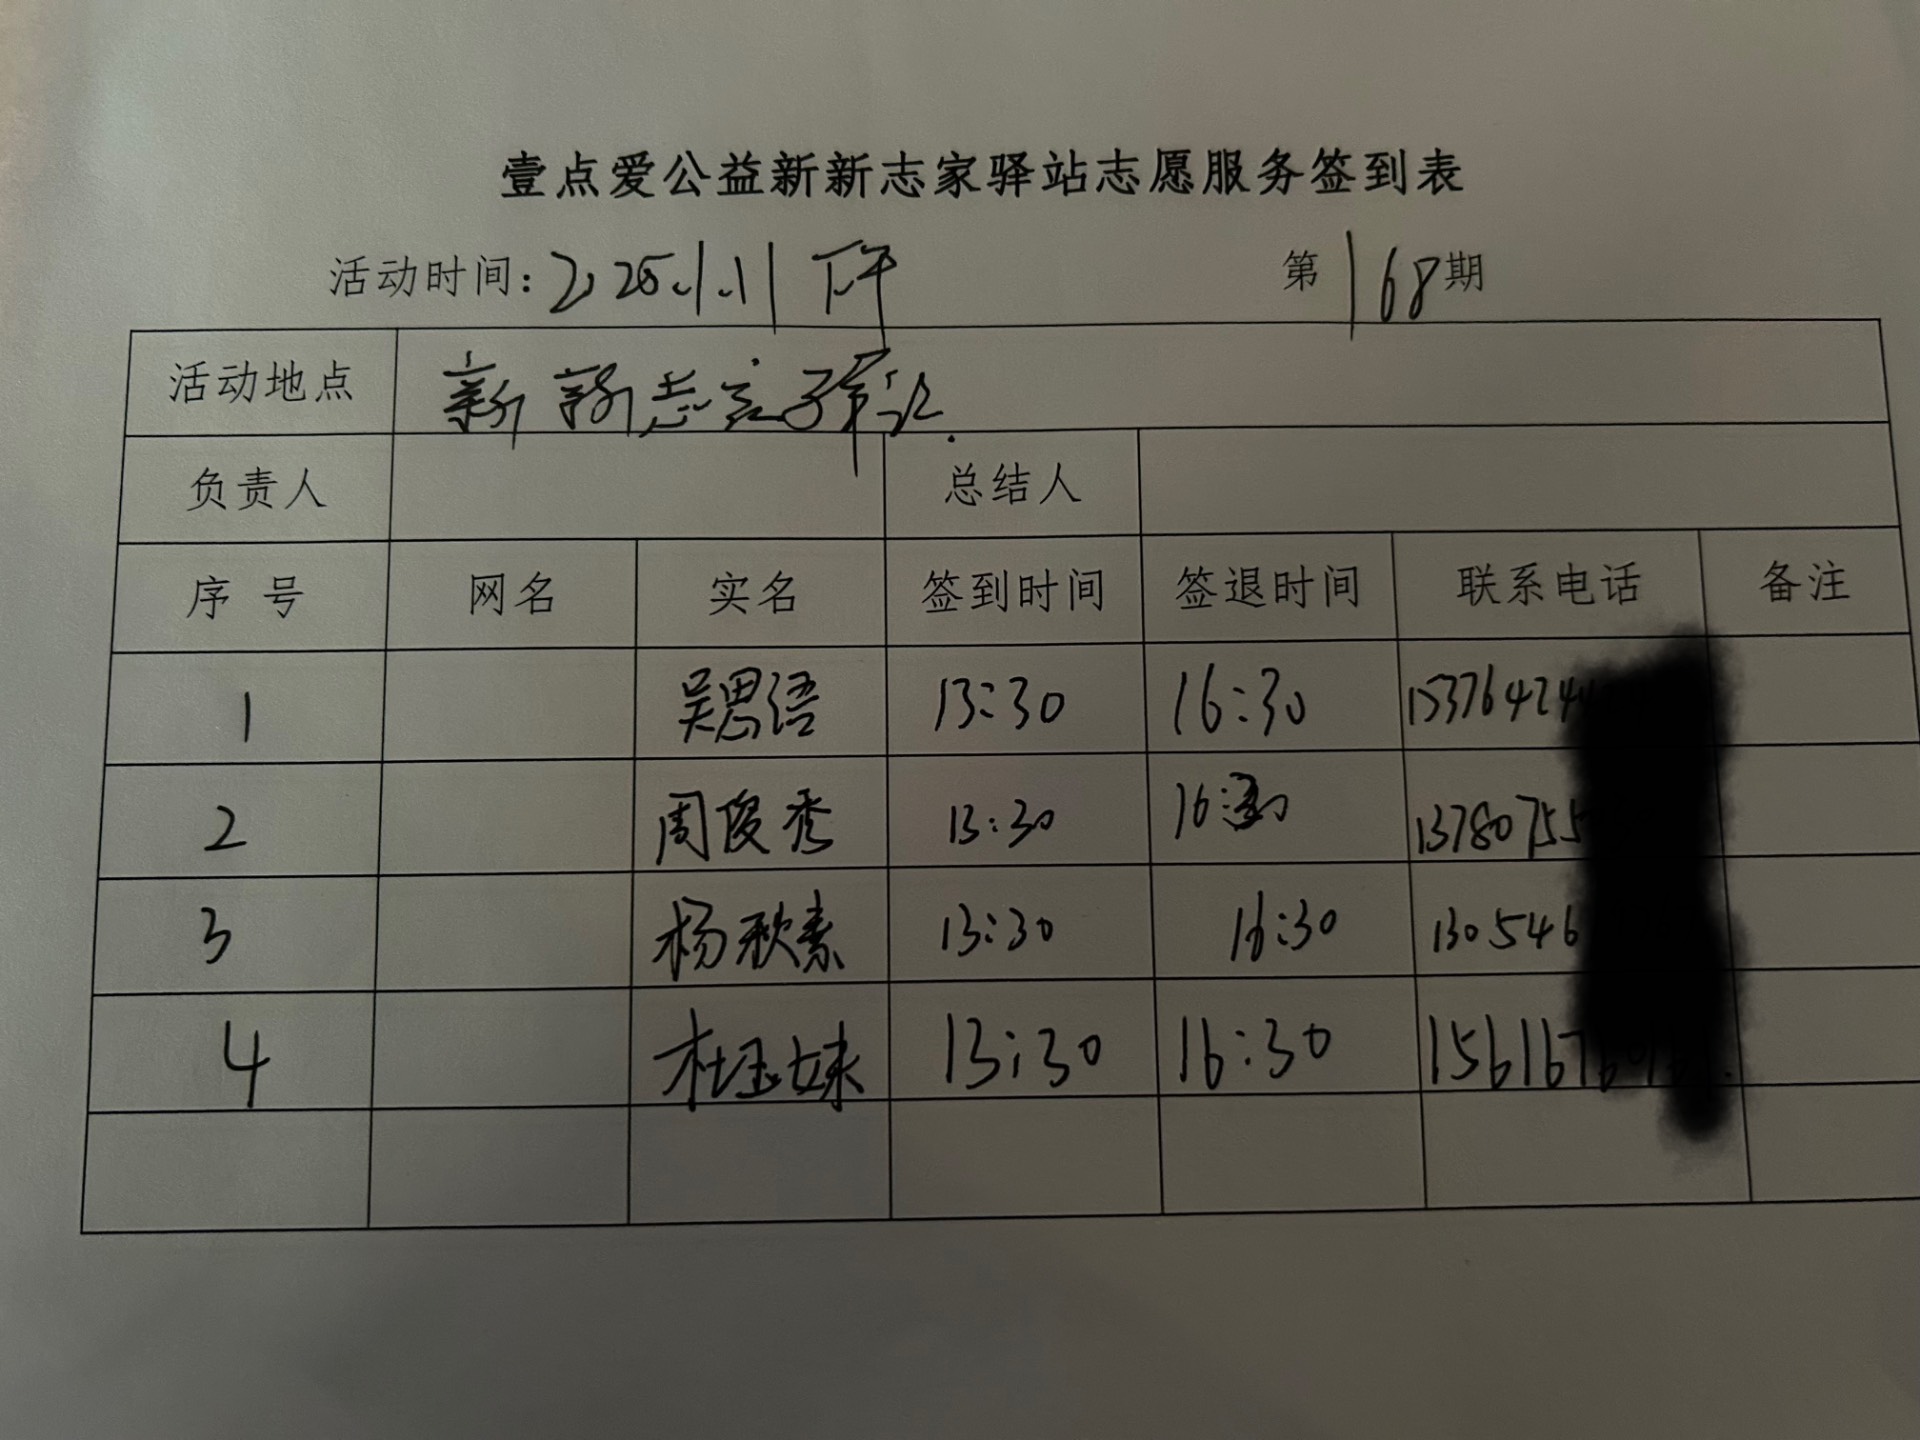 壹点爱公益新新志家驿站志愿服务签到表
活动时间:2025.1.11 下午 第168期
活动地点 新新志家驿站.
负责人 总结人
序号 网名 实名 签到时间 签退时间 联系电话 备注
1 吴思语 13:30 16:30 15376424
2 周俊秀 13:30 16:30 13780755
3 杨秋素 13:30 16:30 130546
4 杜玉妹 13:30 16:30 156167